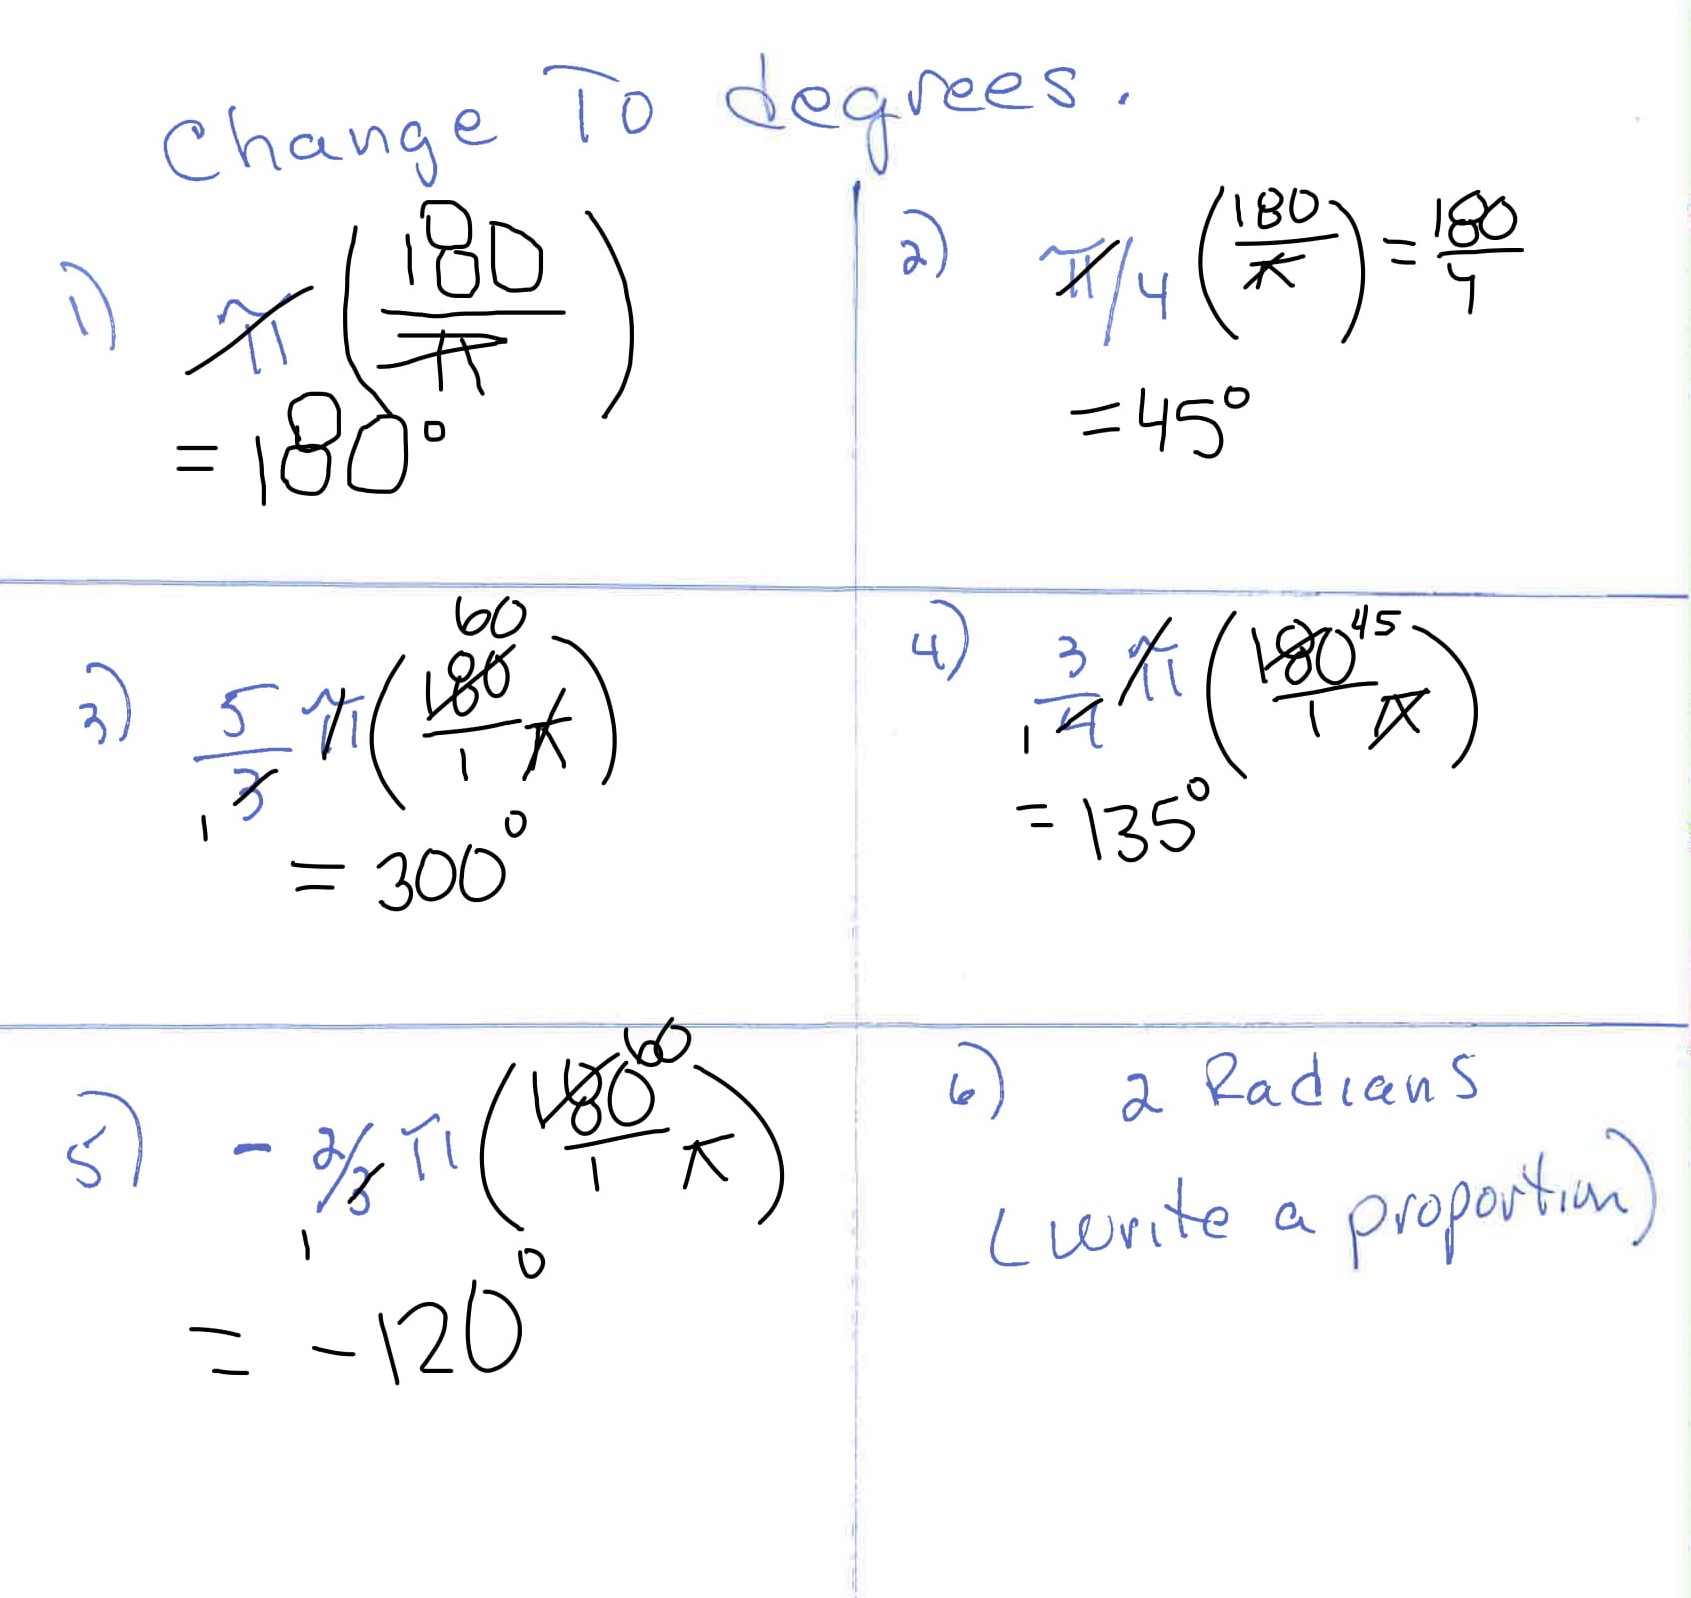 Change To degrees.
1) π (180/π)
= 180°
2) π/4 (180/π) = 180/4
= 45°
60
3) 5/3 π (180/1 π)
1
= 300°
4) 3/4 π (180/1 π) 45
1
= 135°
60
5) - 2/3 π (180/1 π)
1
= -120°
6) 2 Radians
(write a proportion)